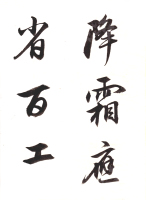 降霜應
省百工